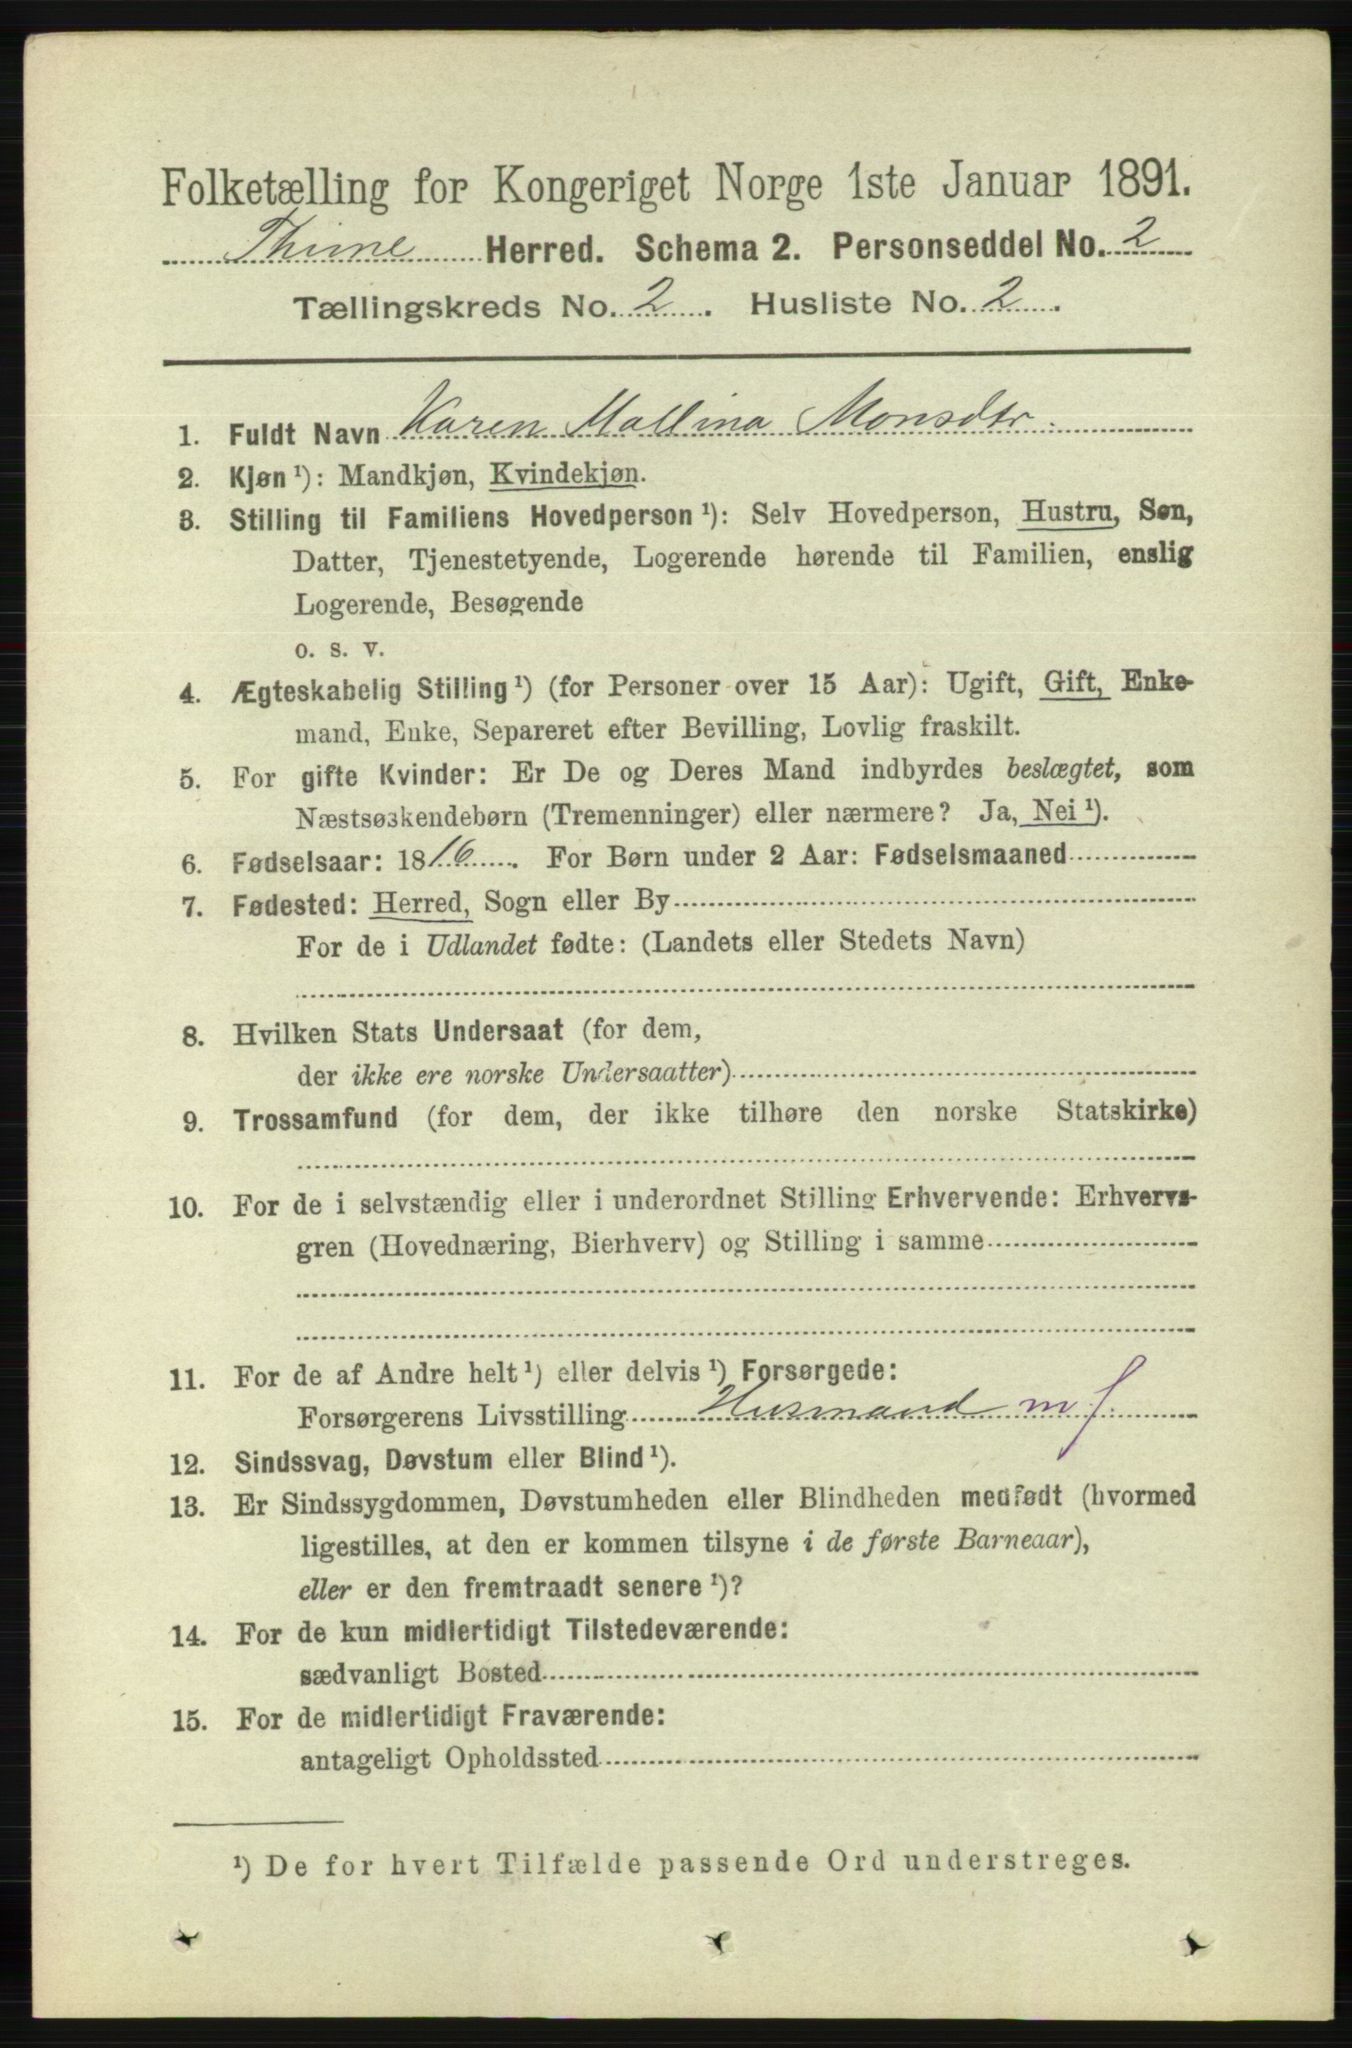 Folketælling for Kongeriget Norge 1ste Januar 1891.
Thime Herred. Schema 2. Personseddel No. 2
Tællingskreds No. 2. Husliste No. 2.
1. Fuldt Navn Karen Mallina Monsdtr.
2. Kjøn ¹): Mandkjøn, Kvindekjøn.
3. Stilling til Familiens Hovedperson ¹): Selv Hovedperson, Hustru, Søn,
Datter, Tjenestetyende, Logerende hørende til Familien, enslig
Logerende, Besøgende
o. s. v.
4. Ægteskabelig Stilling ¹) (for Personer over 15 Aar): Ugift, Gift, Enke-
mand, Enke, Separeret efter Bevilling, Lovlig fraskilt.
5. For gifte Kvinder: Er De og Deres Mand indbyrdes beslægtet, som
Næstsøskendebørn (Tremenninger) eller nærmere? Ja, Nei ¹).
6. Fødselsaar: 1816. For Børn under 2 Aar: Fødselsmaaned
7. Fødested: Herred, Sogn eller By
For de i Udlandet fødte: (Landets eller Stedets Navn)
8. Hvilken Stats Undersaat (for dem,
der ikke ere norske Undersaatter)
9. Trossamfund (for dem, der ikke tilhøre den norske Statskirke)
10. For de i selvstændig eller i underordnet Stilling Erhvervende: Erhvervs-
gren (Hovednæring, Bierhverv) og Stilling i samme
11. For de af Andre helt ¹) eller delvis ¹) Forsørgede:
Forsørgerens Livsstilling Husmand m j
12. Sindssvag, Døvstum eller Blind ¹).
13. Er Sindssygdommen, Døvstumheden eller Blindheden medfødt (hvormed
ligestilles, at den er kommen tilsyne i de første Barneaar),
eller er den fremtraadt senere ¹)?
14. For de kun midlertidigt Tilstedeværende:
sædvanligt Bosted
15. For de midlertidigt Fraværende:
antageligt Opholdssted
¹) De for hvert Tilfælde passende Ord understreges.